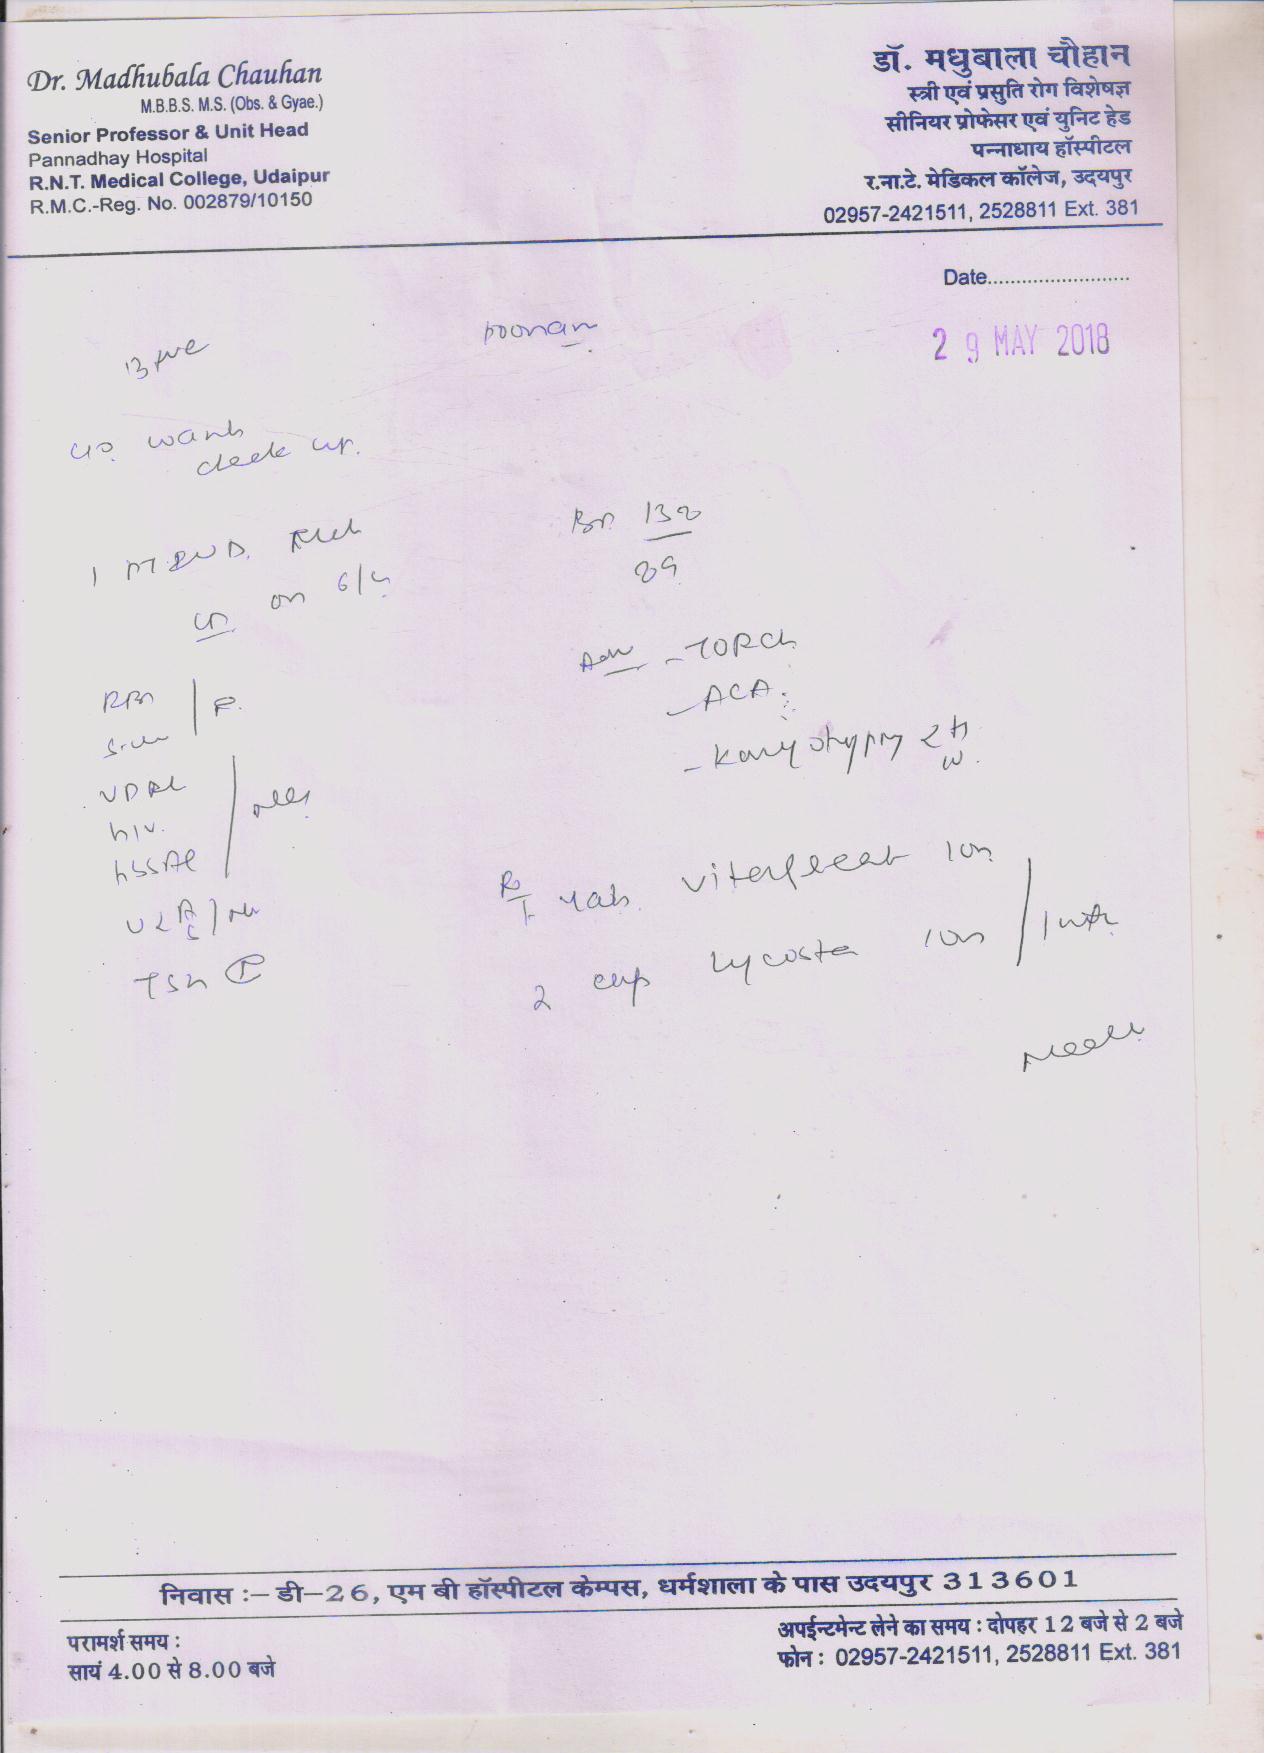 Dr. Madhubala Chauhan
M.B.B.S. M.S. (Obs. & Gyae.)
Senior Professor & Unit Head
Pannadhay Hospital
R.N.T. Medical College, Udaipur
R.M.C.-Reg. No. 002879/10150
डॉ. मधुबाला चौहान
स्त्री एवं प्रसुति रोग विशेषज्ञ
सीनियर प्रोफेसर एवं युनिट हेड
पन्नाधाय हॉस्पीटल
र.ना.टे. मेडिकल कॉलेज, उदयपुर
02957-2421511, 2528811 Ext. 381
Date.........................
29 MAY 2018
poonam
B +ve
c/o wants
check up.
on 6/4
BP 132
89
Adv - TORCH
- ACA
- Karyotyping
VDRL
HIV
HBSAg
TSH
Rx Tab.
2 cap Lycosta
निवास :– डी–26, एम बी हॉस्पीटल केम्पस, धर्मशाला के पास उदयपुर 313601
परामर्श समय :
सायं 4.00 से 8.00 बजे
अपईन्टमेन्ट लेने का समय : दोपहर 12 बजे से 2 बजे
फोन : 02957-2421511, 2528811 Ext. 381